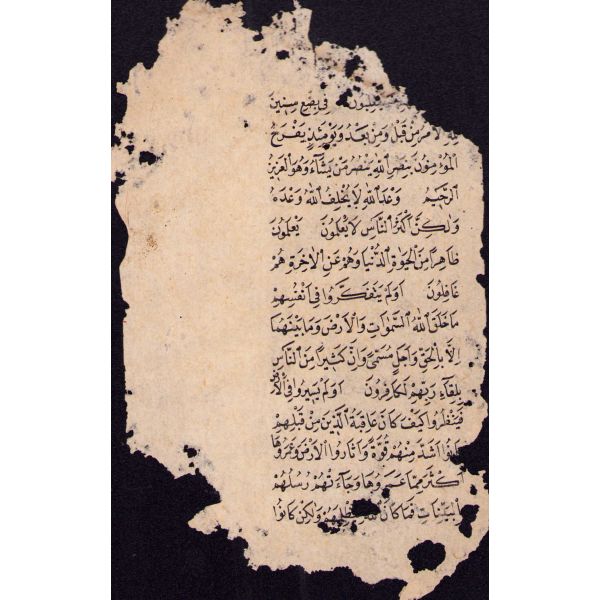 فِي بِضْعِ سِنِينَ
لِلَّهِ الْأَمْرُ مِنْ قَبْلُ وَمِنْ بَعْدُ وَيَوْمَئِذٍ يَفْرَحُ
الْمُؤْمِنُونَ بِنَصْرِ اللَّهِ يَنْصُرُ مَنْ يَشَاءُ وَهُوَ الْعَزِيزُ
الرَّحِيمُ وَعْدَ اللَّهِ لَا يُخْلِفُ اللَّهُ وَعْدَهُ
وَلَكِنَّ أَكْثَرَ النَّاسِ لَا يَعْلَمُونَ يَعْلَمُونَ
ظَاهِرًا مِنَ الْحَيٰوةِ الدُّنْيَا وَهُمْ عَنِ الْآخِرَةِ هُمْ
غَافِلُونَ أَوَلَمْ يَتَفَكَّرُوا فِي أَنْفُسِهِمْ
مَا خَلَقَ اللَّهُ السَّمٰوَاتِ وَالْأَرْضَ وَمَا بَيْنَهُمَا
إِلَّا بِالْحَقِّ وَأَجَلٍ مُسَمًّى وَإِنَّ كَثِيرًا مِنَ النَّاسِ
بِلِقَاءِ رَبِّهِمْ لَكَافِرُونَ أَوَلَمْ يَسِيرُوا فِي الْأَرْضِ
فَيَنْظُرُوا كَيْفَ كَانَ عَاقِبَةُ الَّذِينَ مِنْ قَبْلِهِمْ
كَانُوا أَشَدَّ مِنْهُمْ قُوَّةً وَأَثَارُوا الْأَرْضَ وَعَمَرُوهَا
أَكْثَرَ مِمَّا عَمَرُوهَا وَجَاءَتْهُمْ رُسُلُهُمْ
بِالْبَيِّنَاتِ فَمَا كَانَ اللَّهُ لِيَظْلِمَهُمْ وَلَكِنْ كَانُوا